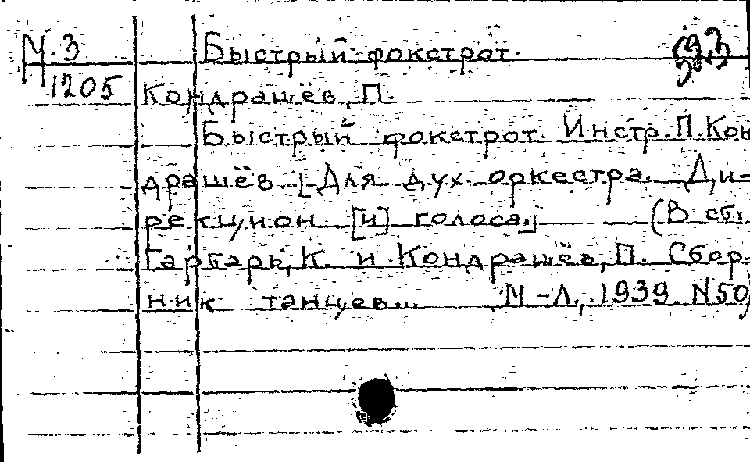 М.3 Быстрый фокстрот.
1205 Кондрашёв, П.
Быстрый фокстрот. Инстр. П. Кон
драшёв. [Для дух. оркестра. Ди-
рекцион [и] голоса.] (В сб.:
Гарбарь, К. и Кондрашёв, П. Сбор-
ник танцев... М-Л, 1939 N50)